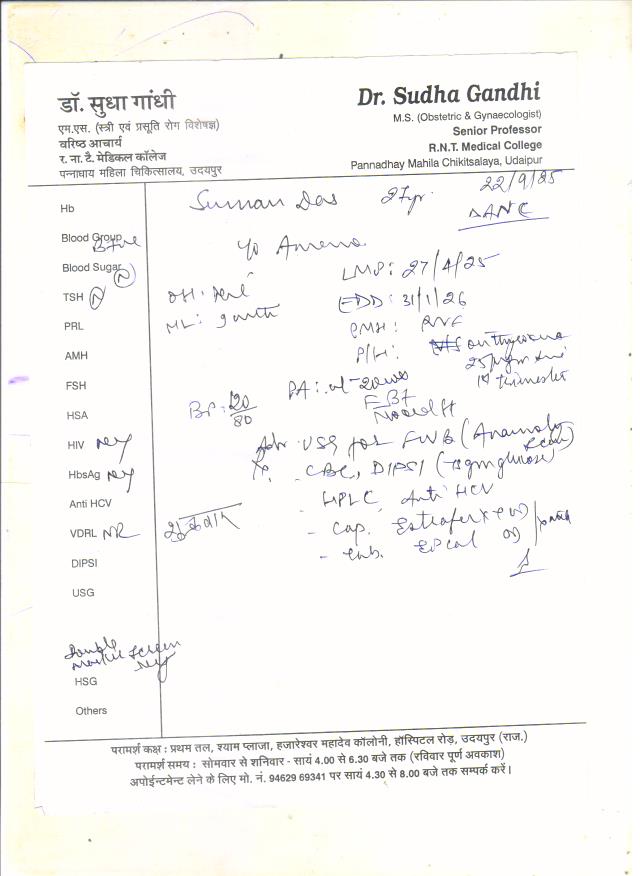 डॉ. सुधा गांधी
एम.एस. (स्त्री एवं प्रसूति रोग विशेषज्ञ)
वरिष्ठ आचार्य
र. ना. टै. मेडिकल कॉलेज
पन्नाधाय महिला चिकित्सालय, उदयपुर
Dr. Sudha Gandhi
M.S. (Obstetric & Gynaecologist)
Senior Professor
R.N.T. Medical College
Pannadhay Mahila Chikitsalaya, Udaipur
22/9/25
Hb Suman Das 27yr. ANC
Blood Group B+ve
Blood Sugar N LMP: 27/4/25
TSH N EDD: 31/1/26
PRL ML:
AMH P/H:
25 1st trimester
FSH PA: 20
HSA BP: 80
HIV Adv. USG for FWB (
HbsAg CBC, DIPSI (75gm glucose)
Anti HCV - HPLC, Anti HCV
VDRL NR शुक्रवार - Cap.
DIPSI
USG
Double marker screen
HSG
Others
परामर्श कक्ष : प्रथम तल, श्याम प्लाजा, हजारेश्वर महादेव कॉलोनी, हॉस्पिटल रोड़, उदयपुर (राज.)
परामर्श समय : सोमवार से शनिवार - सायं 4.00 से 6.30 बजे तक (रविवार पूर्ण अवकाश)
अपोईन्टमेन्ट लेने के लिए मो. नं. 94629 69341 पर सायं 4.30 से 8.00 बजे तक सम्पर्क करें।